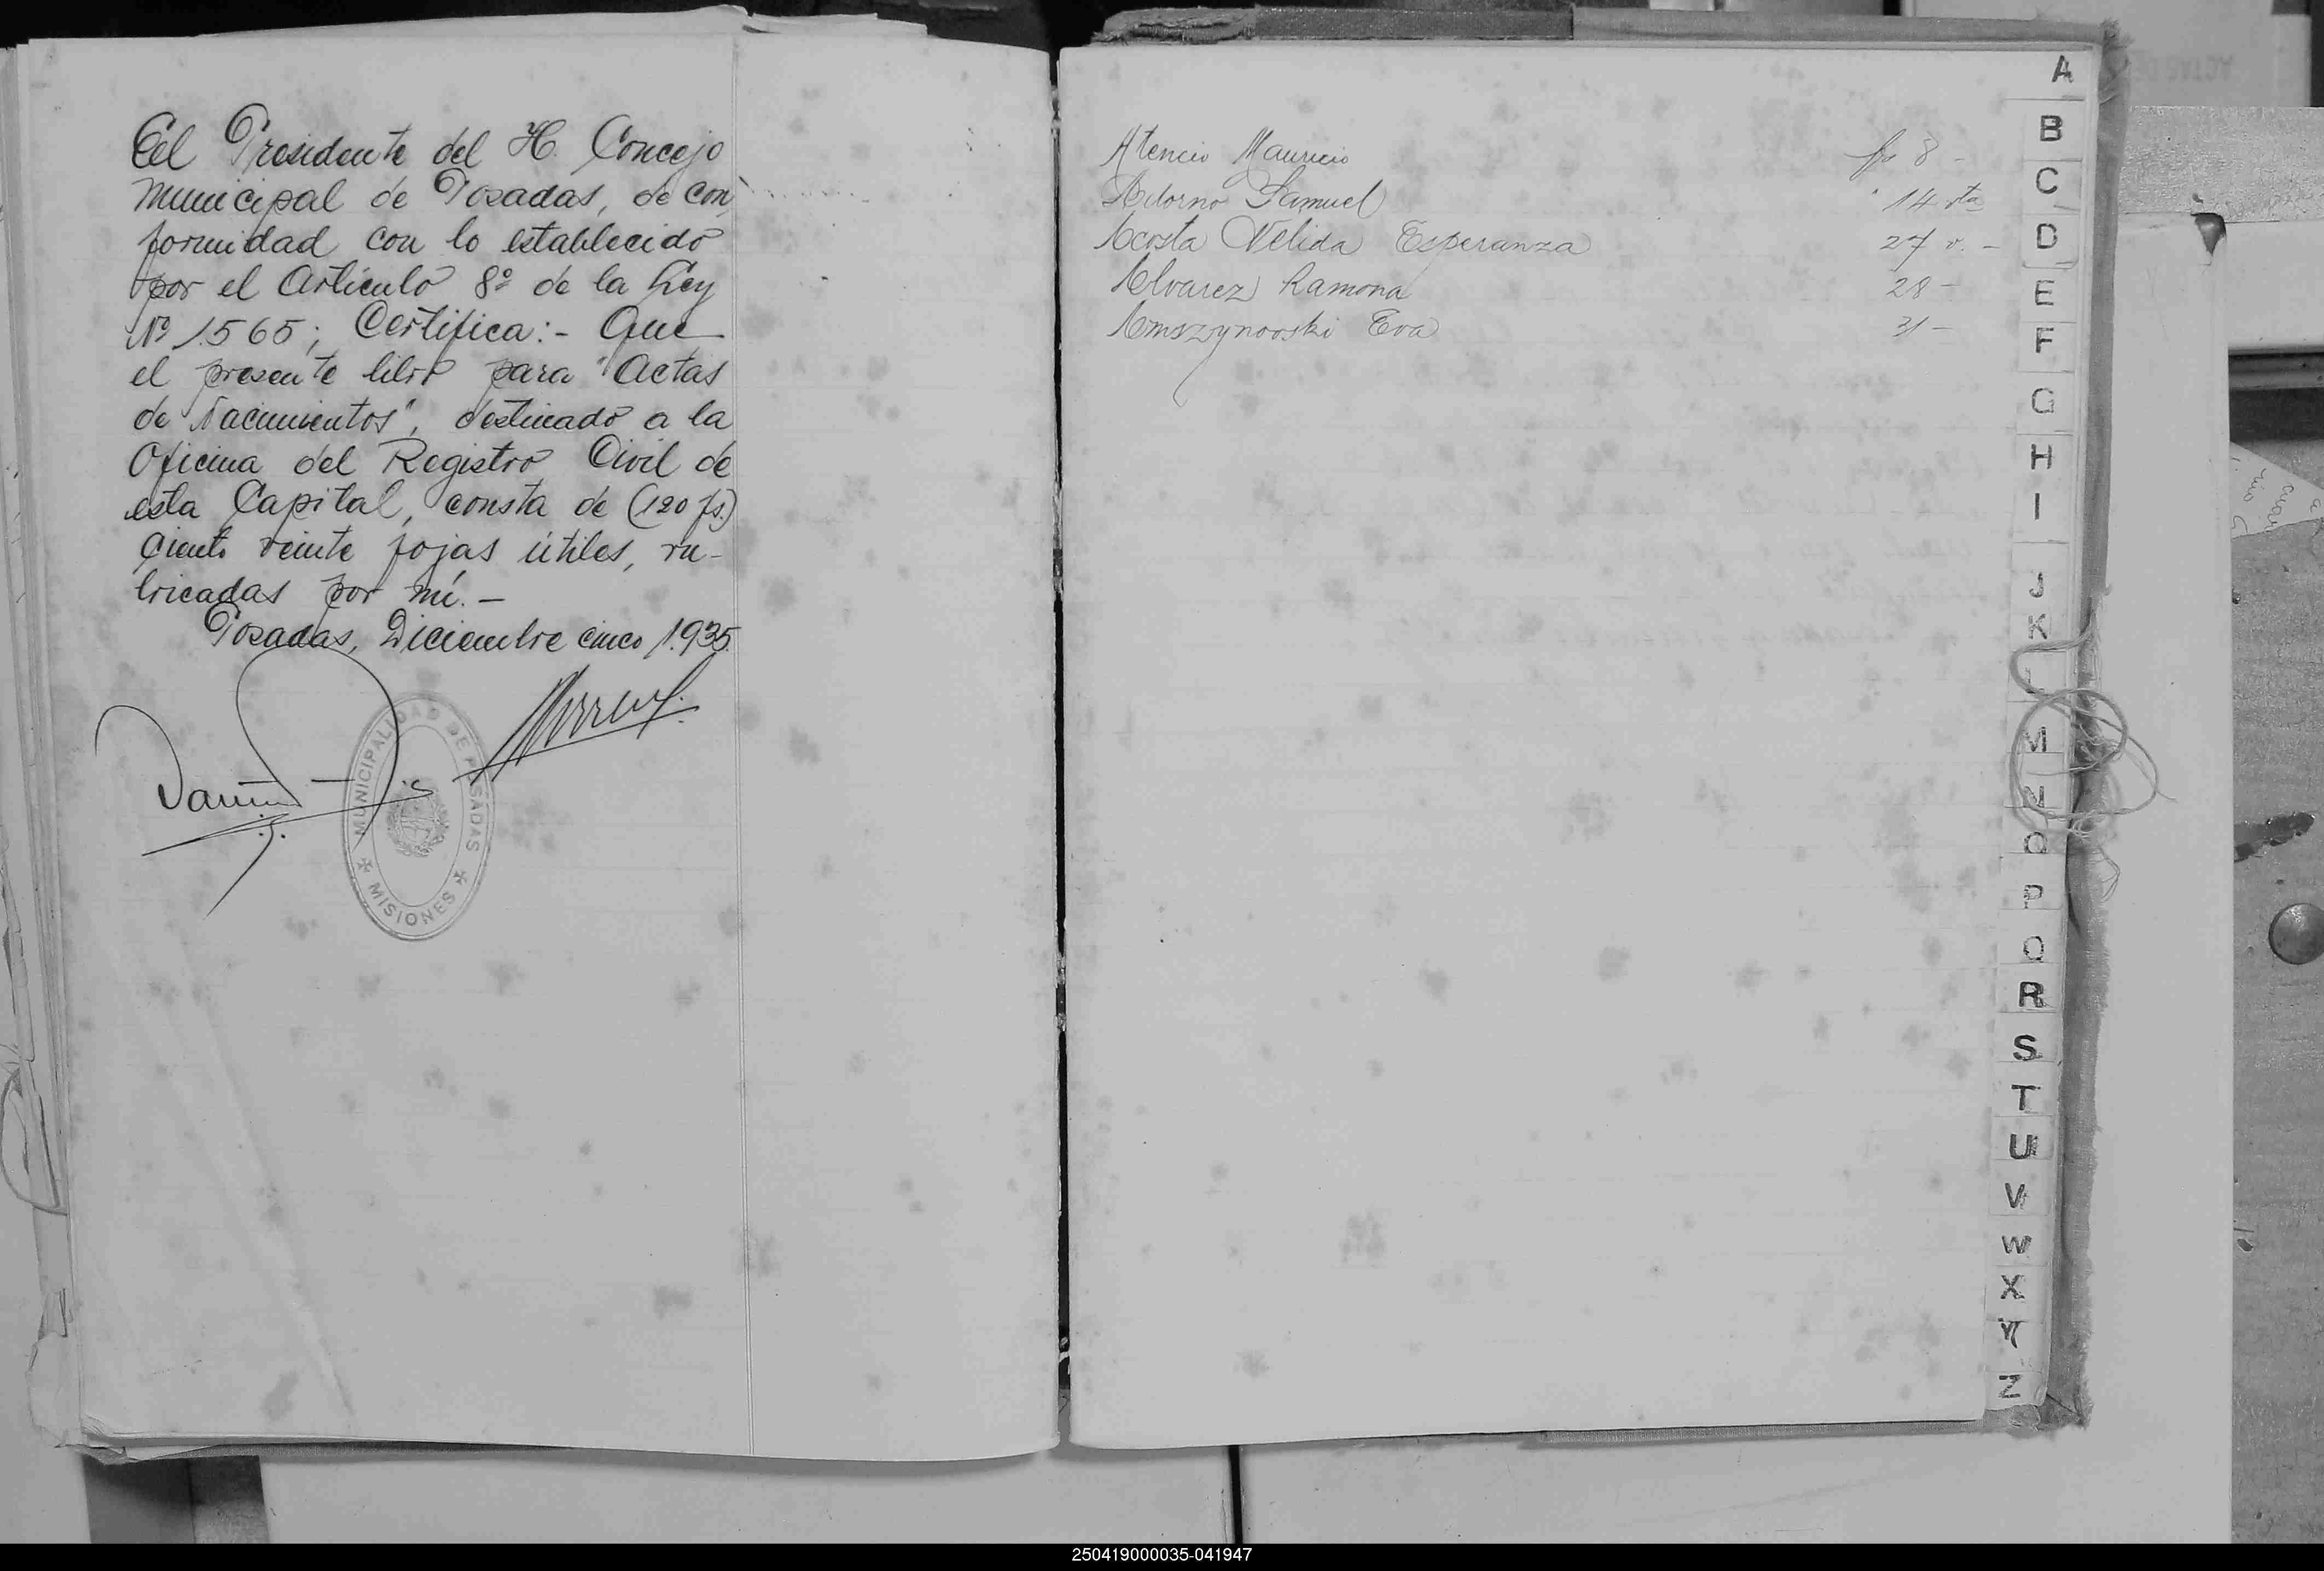 El Presidente del H. Concejo
Municipal de Posadas, de con,
formidad con lo establecido
por el Artículo 8º de la Ley
Nº 1.565; Certifica:- Que
el presente libro para "Actas
de Nacimientos", destinado a la
Oficina del Registro Civil de
esta Capital, consta de (120 fs.)
ciento veinte fojas útiles, ru-
bricadas por mí.-
Posadas, Diciembre cinco 1.935.
MUNICIPALIDAD DE POSADAS
MISIONES
Atencio Mauricio fs 8 -
Samuel " 14 vta
Acosta Nelida Esperanza 27 v. -
Alvarez Ramona 28 -
Eva 31 -
A
B
C
D
E
F
G
H
I
J
K
L
M
N
O
P
Q
R
S
T
U
V
W
X
Y
Z
250419000035-041947